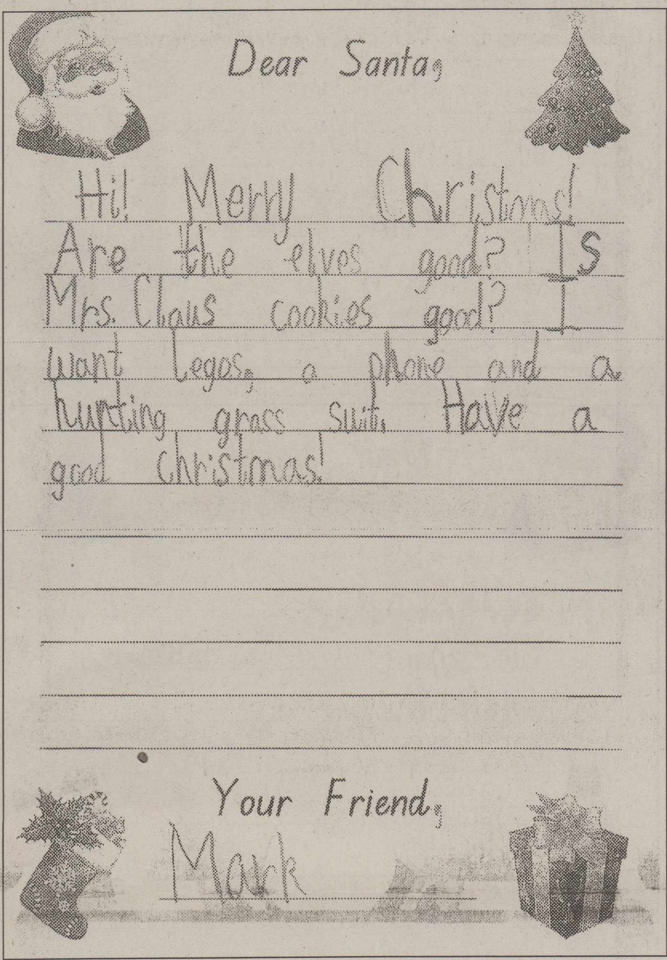 Dear Santa,
Hi! Merry Christmas!
Are the elves good? Is
Mrs. Claus cookies good? I
want Legos, a phone and a
hunting grass suit. Have a
good christmas!
Your Friend,
Mark